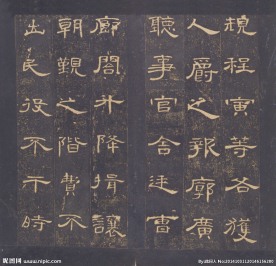 規程寅等各獲
人爵之報廓廣
聽事官舍廷曹
廊閣升降揖讓
朝覲之階費不
出民役不干時
昵图网 www.nipic.com